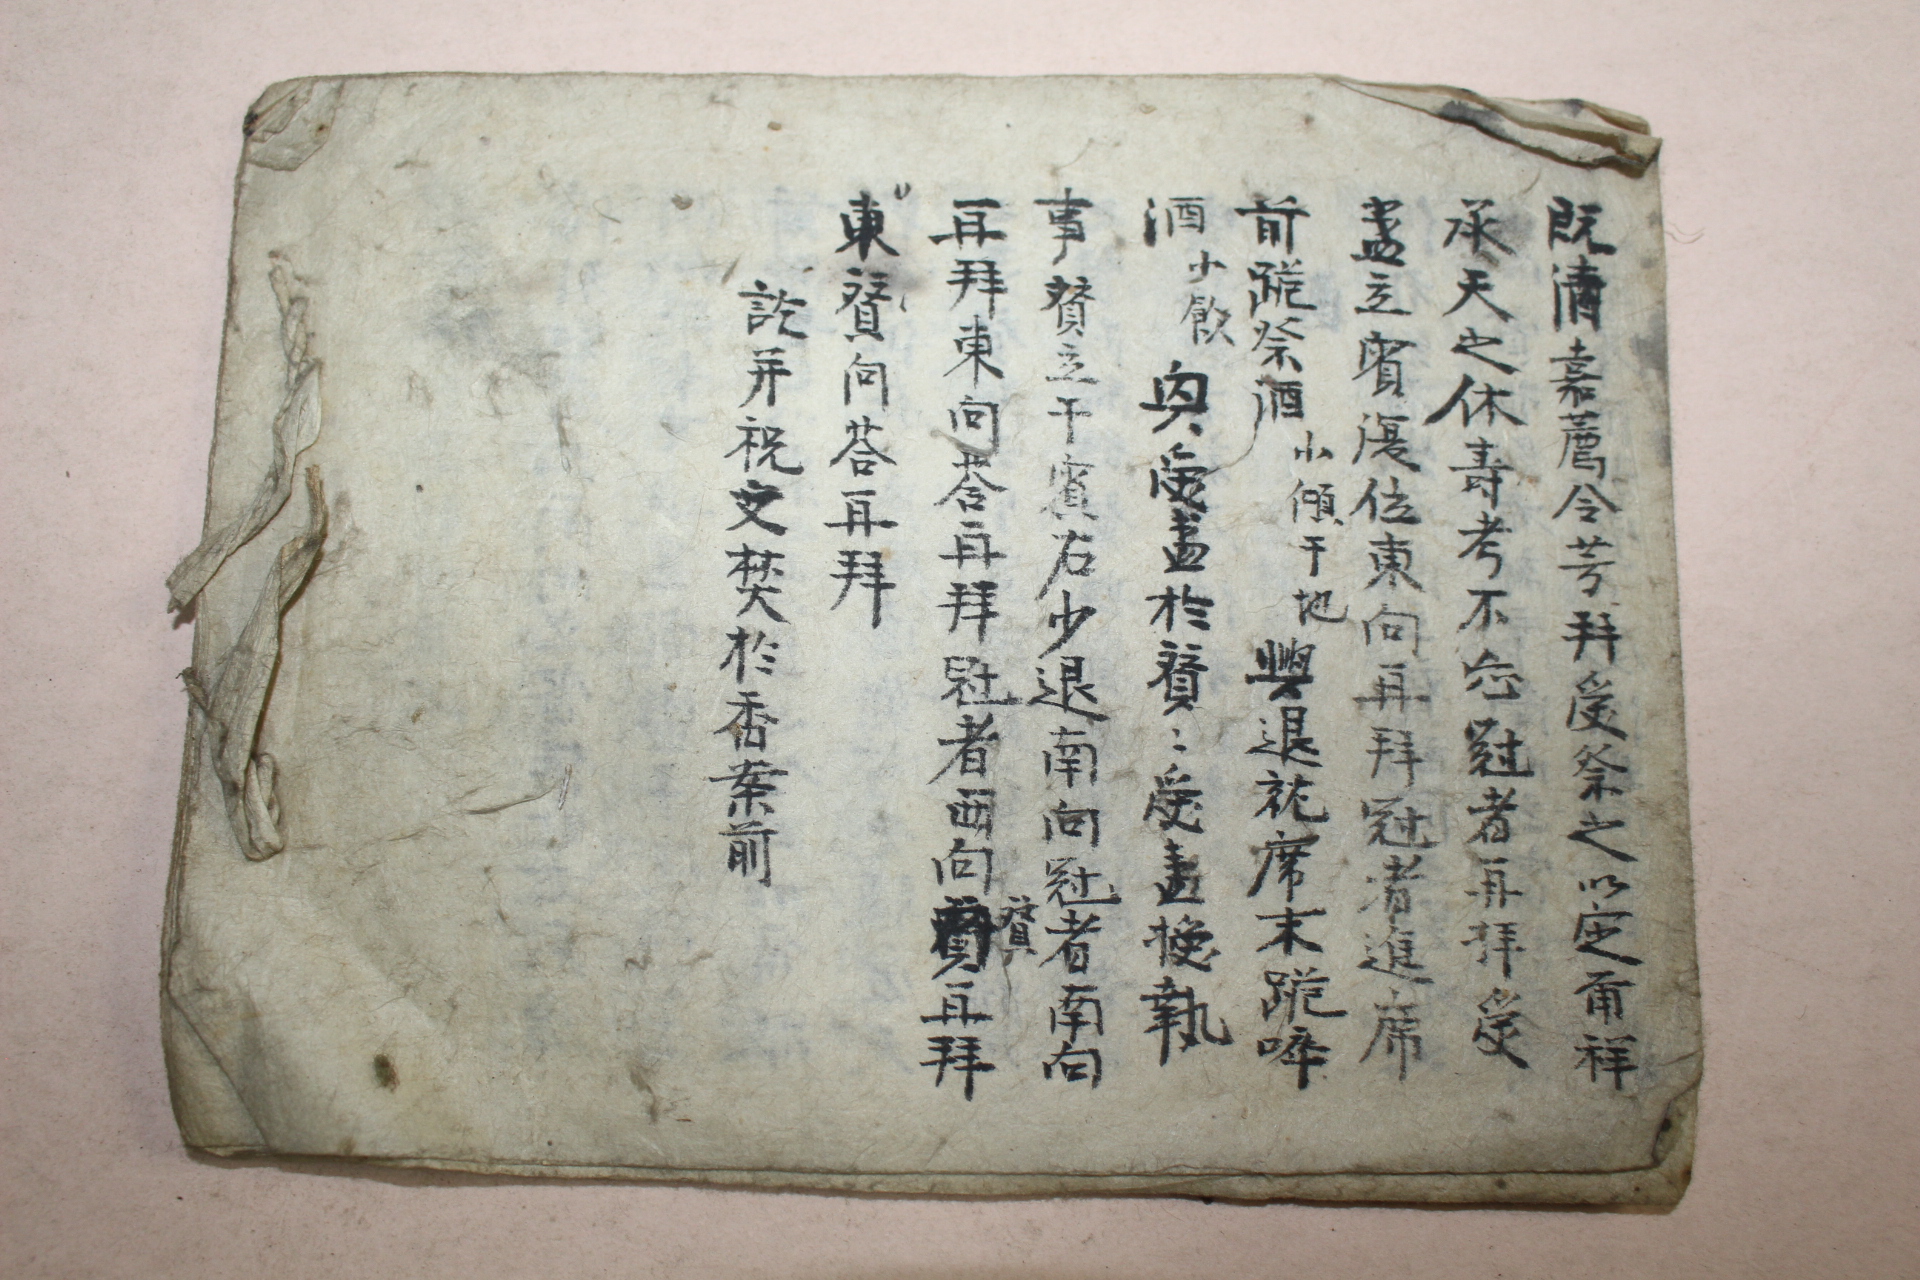 既清嘉薦令芳拜受祭之以定甭祥
承天之休壽考不忘冠者再拜受
盞立賓復位東向再拜冠者進席
前跪祭酒小傾于地興退就席末跪啐
酒少飮興受盞於賛〻受盞授執
事賛立于賓右少退南向冠者南向
再拜東向荅再拜冠者西向賛再拜
東賛向荅再拜
訖并祝文焚於香案前